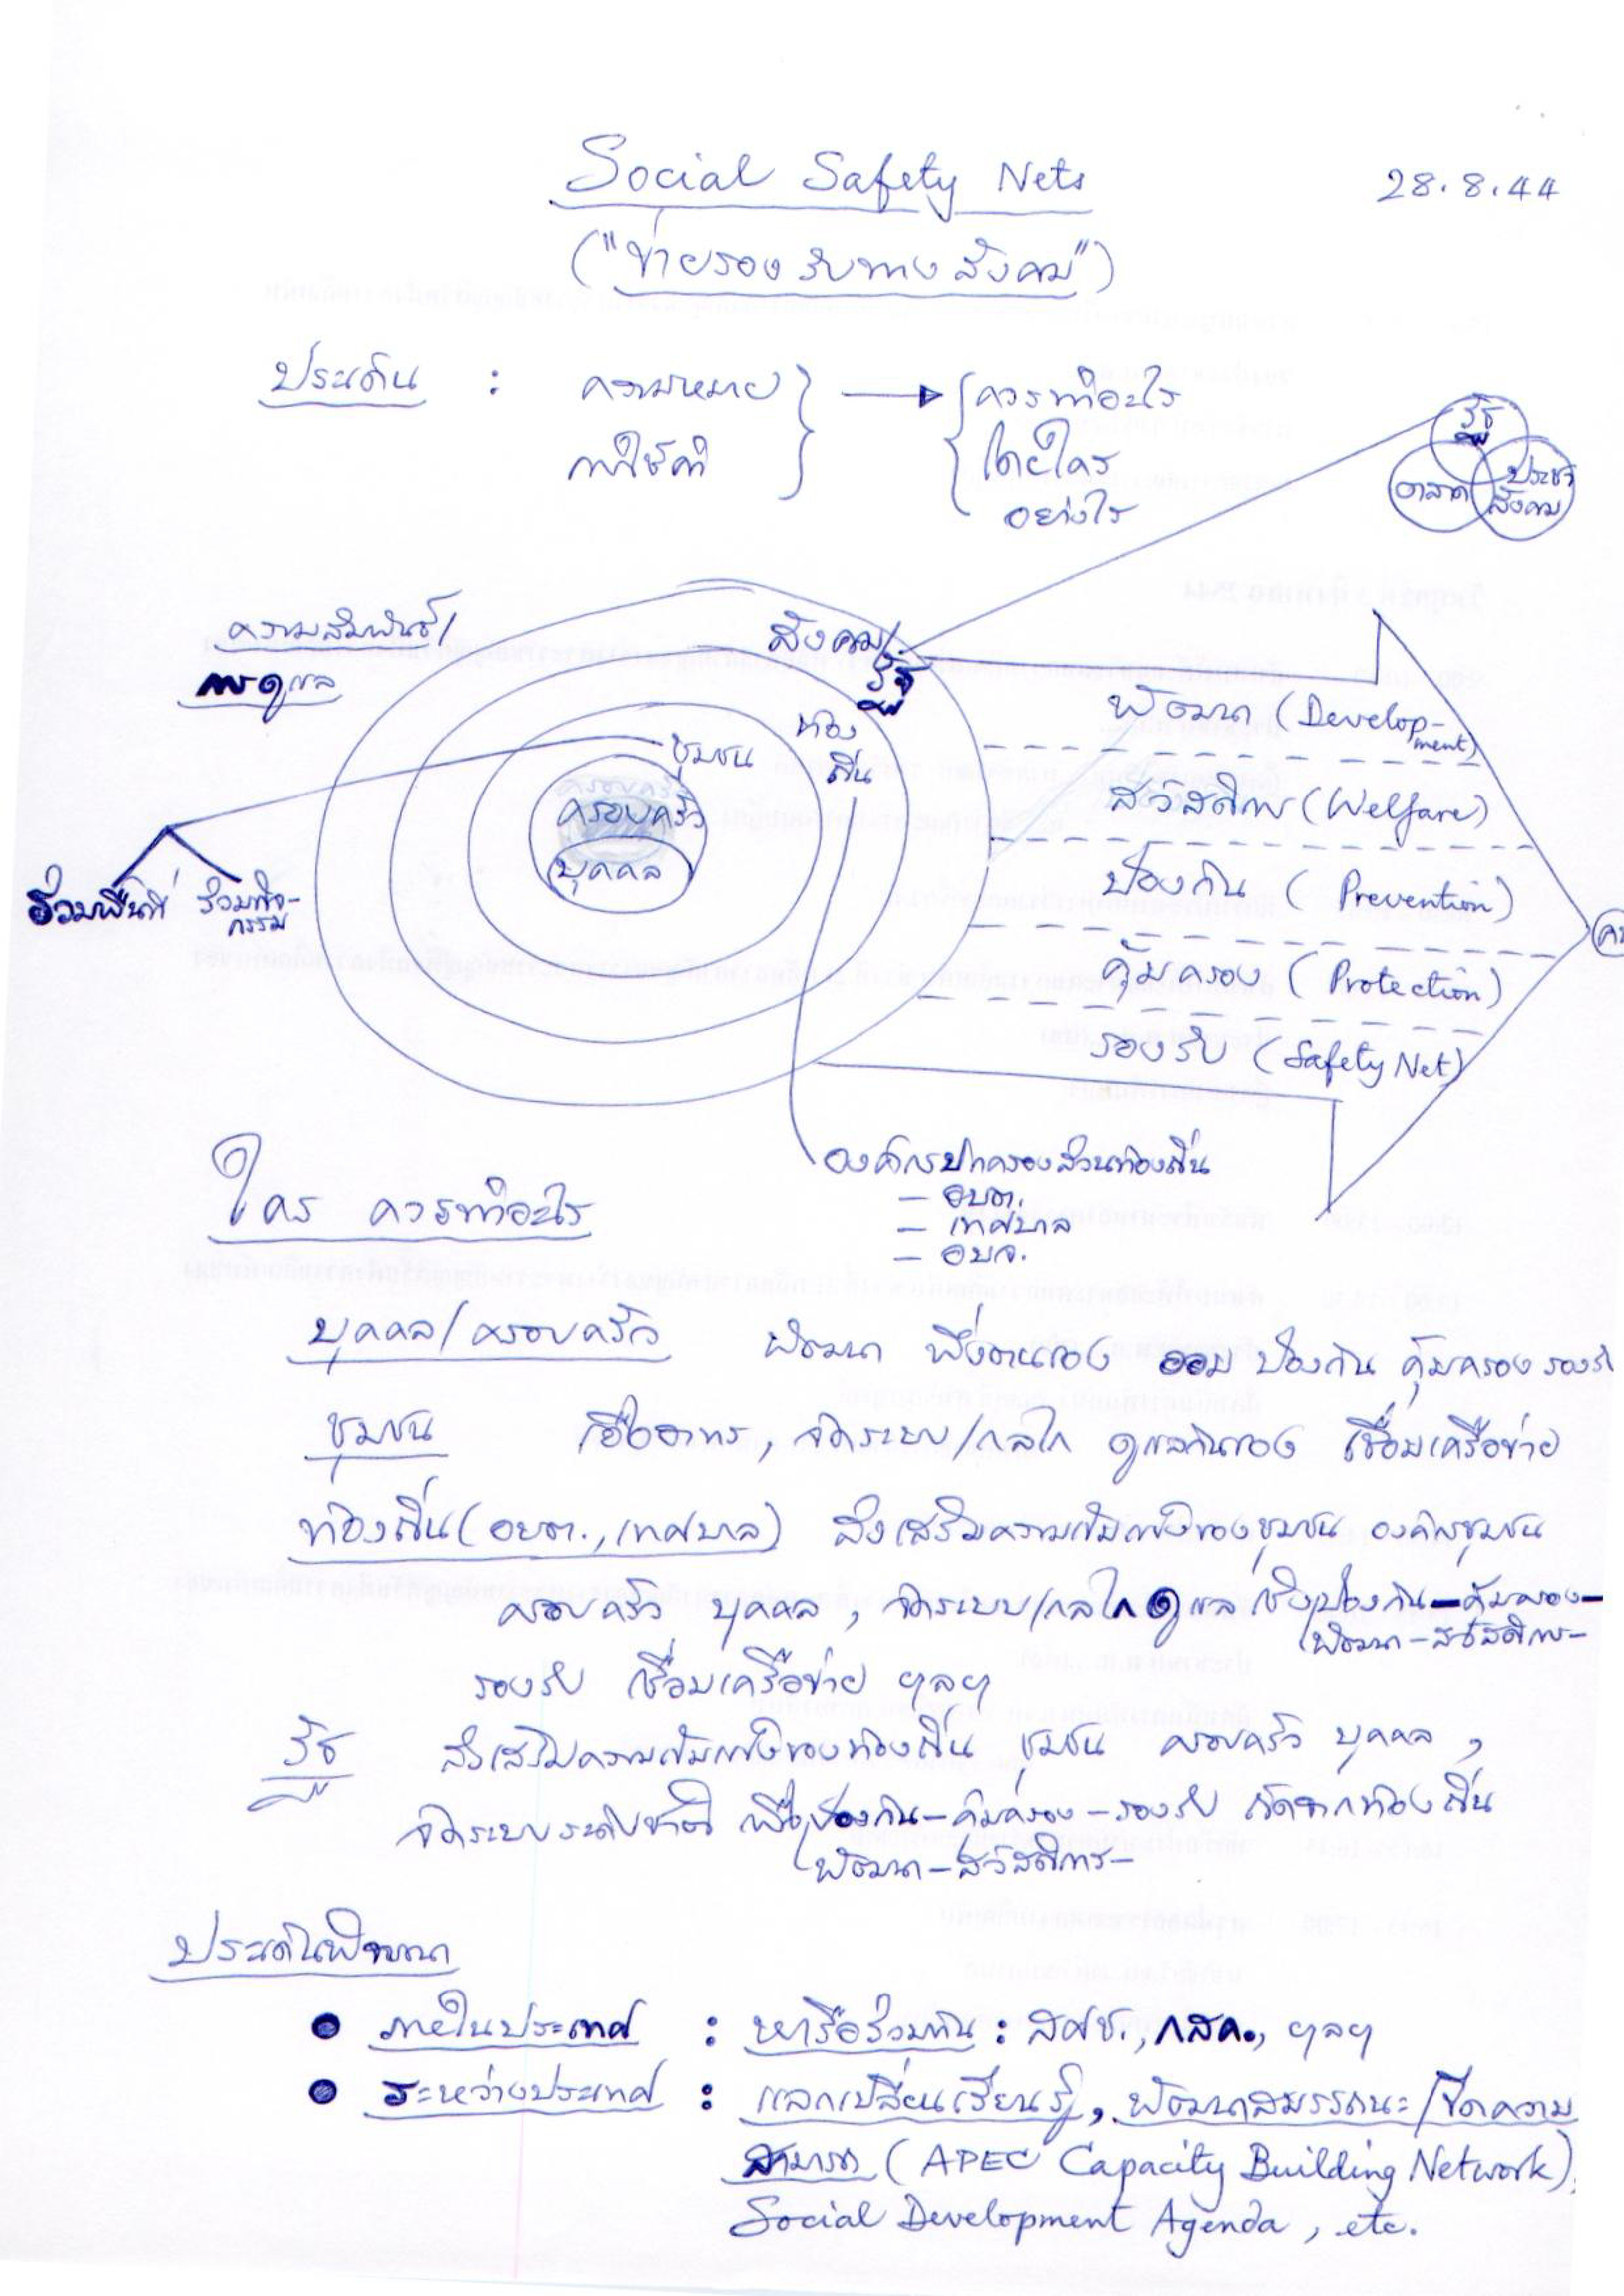 Social Safety Nets
28.8.44
("ข่ายรองรับทางสังคม")
ประเด็น : ความหมาย → ควรทำอะไร
การใช้คำ โดยใคร
อย่างไร
รัฐ
ตลาด ประชา
สังคม
ความสัมพันธ์/
การดูแล
สังคม/
รัฐ
ท้อง
ถิ่น
ชุมชน
ครอบครัว
ครอบครัว
บุคคล
ร่วมพื้นที่ ร่วมกิจ-
กรรม
พัฒนา (Develop-
ment)
สวัสดิการ (Welfare)
ป้องกัน (Prevention)
คุ้มครอง (Protection)
รองรับ (Safety Net)
องค์กรปกครองส่วนท้องถิ่น
- อบต.
- เทศบาล
- อบจ.
ใคร ควรทำอะไร
บุคคล/ครอบครัว พัฒนา พึ่งตนเอง ออม ป้องกัน คุ้มครอง รองรับ
ชุมชน เอื้ออาทร, จัดระบบ/กลไก ดูแลกันเอง เชื่อมเครือข่าย
ท้องถิ่น (อบต., เทศบาล) ส่งเสริมความเข้มแข็งของชุมชน องค์กรชุมชน
ครอบครัว บุคคล, จัดระบบ/กลไกดูแล เชิงป้องกัน-คุ้มครอง-
พัฒนา-สวัสดิการ-
รองรับ เชื่อมเครือข่าย ฯลฯ
รัฐ ส่งเสริมความเข้มแข็งของท้องถิ่น ชุมชน ครอบครัว บุคคล,
จัดระบบระดับชาติ เพื่อป้องกัน-คุ้มครอง-รองรับ ถัดจากท้องถิ่น
พัฒนา-สวัสดิการ-
ประเด็นพิจารณา
● ภายในประเทศ : หารือร่วมกัน : สศช., กสค., ฯลฯ
● ระหว่างประเทศ : แลกเปลี่ยนเรียนรู้, พัฒนาสมรรถนะ/ขีดความ
สามารถ (APEC Capacity Building Network),
Social Development Agenda, etc.